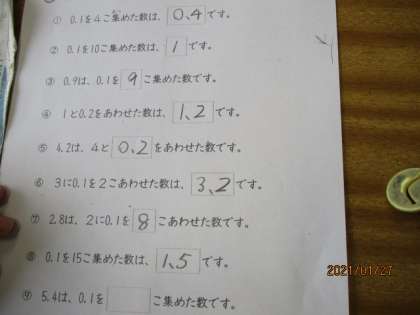 ① 0.1を4こ集めた数は、0.4です。
② 0.1を10こ集めた数は、1です。
③ 0.9は、0.1を9こ集めた数です。
④ 1と0.2をあわせた数は、1.2です。
⑤ 4.2は、4と0.2をあわせた数です。
⑥ 3に0.1を2こあわせた数は、3.2です。
⑦ 2.8は、2に0.1を8こあわせた数です。
⑧ 0.1を15こ集めた数は、1.5です。
⑨ 5.4は、0.1をこ集めた数です。
2021/01/27